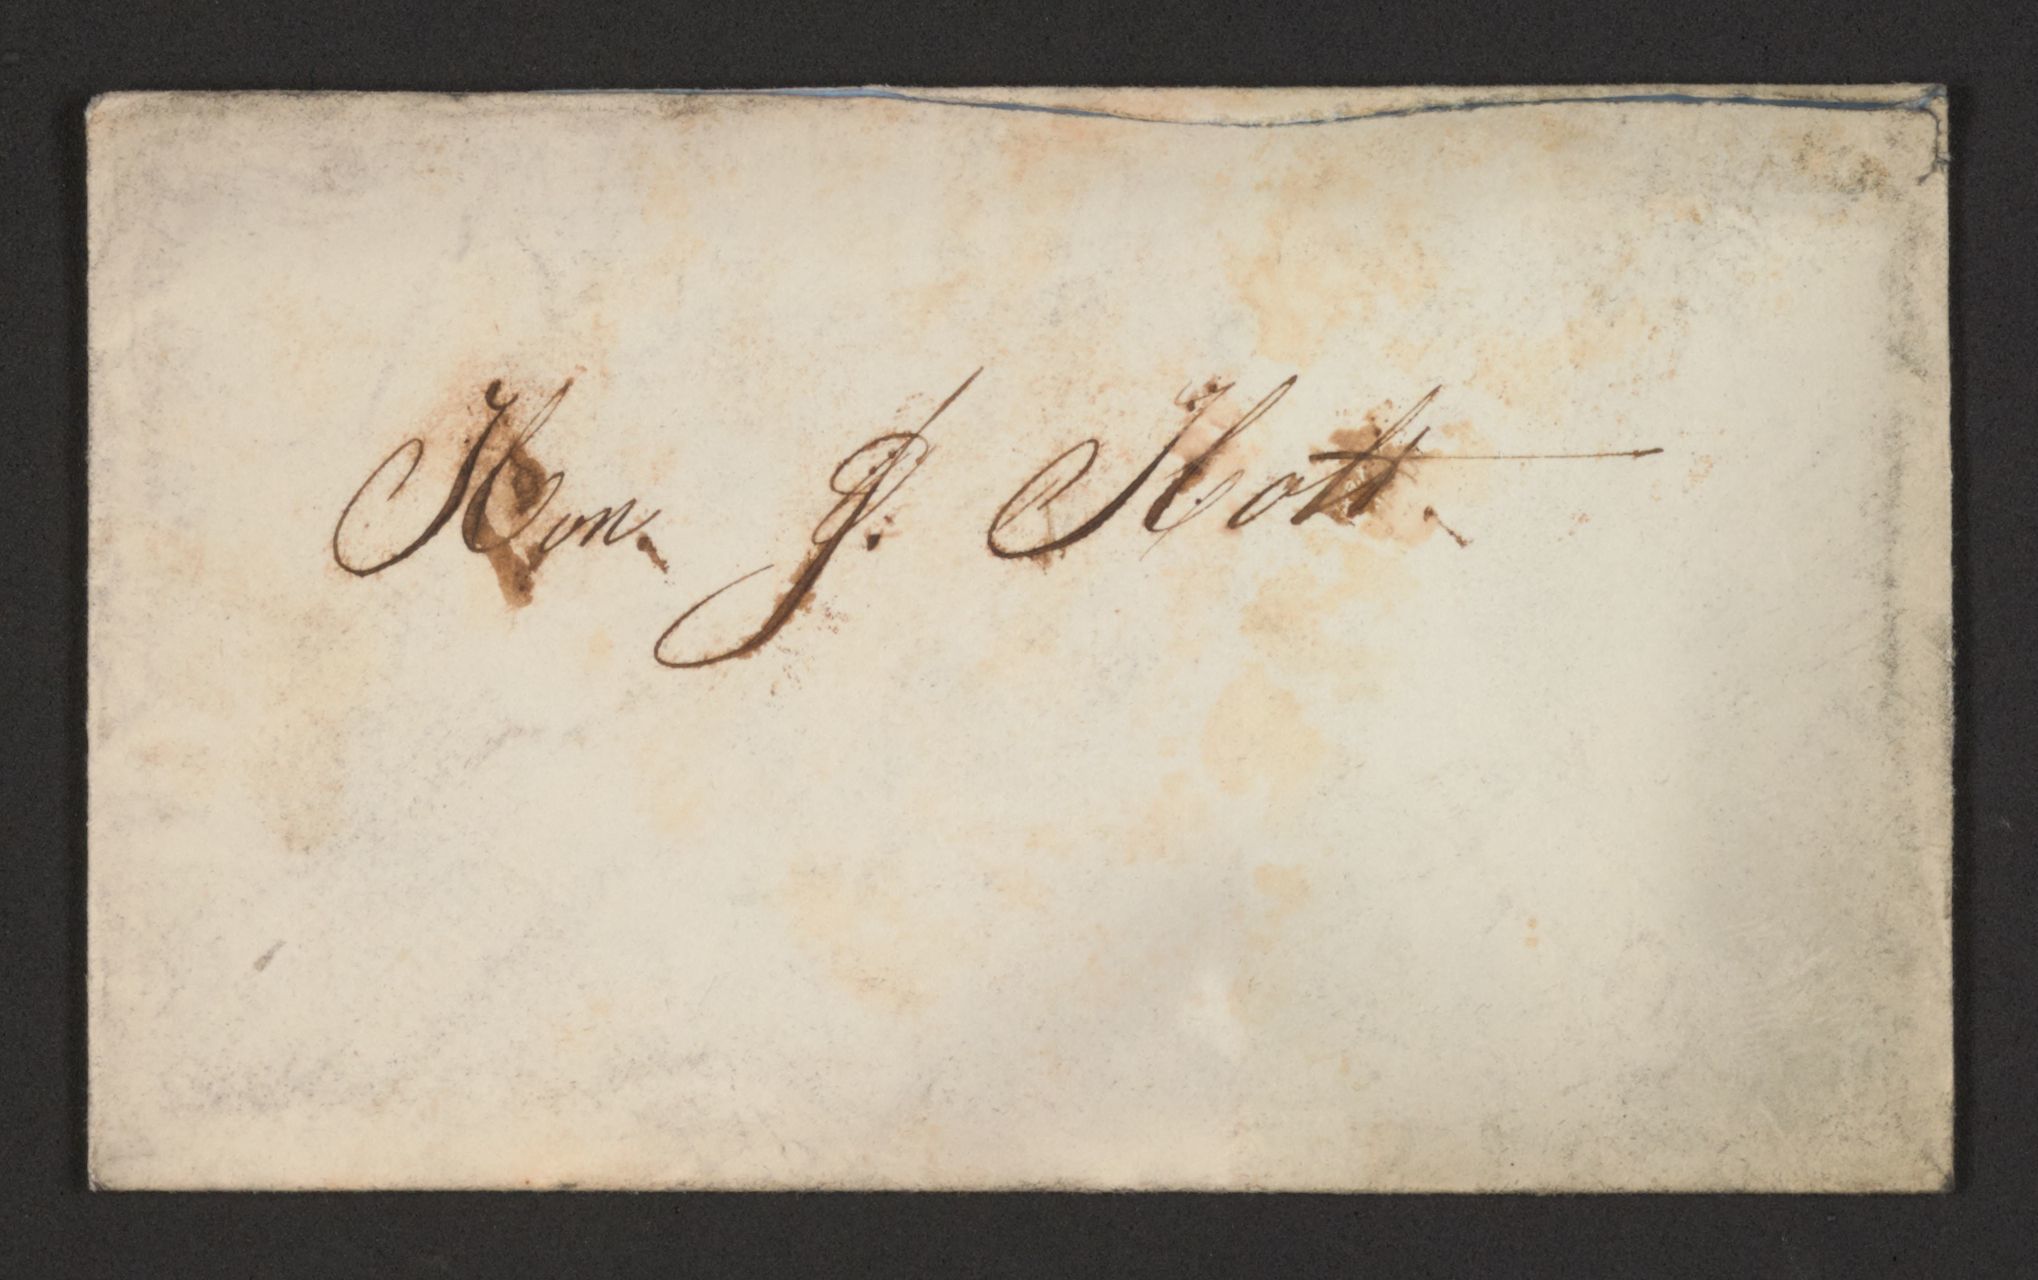 Hon. J. Holt.